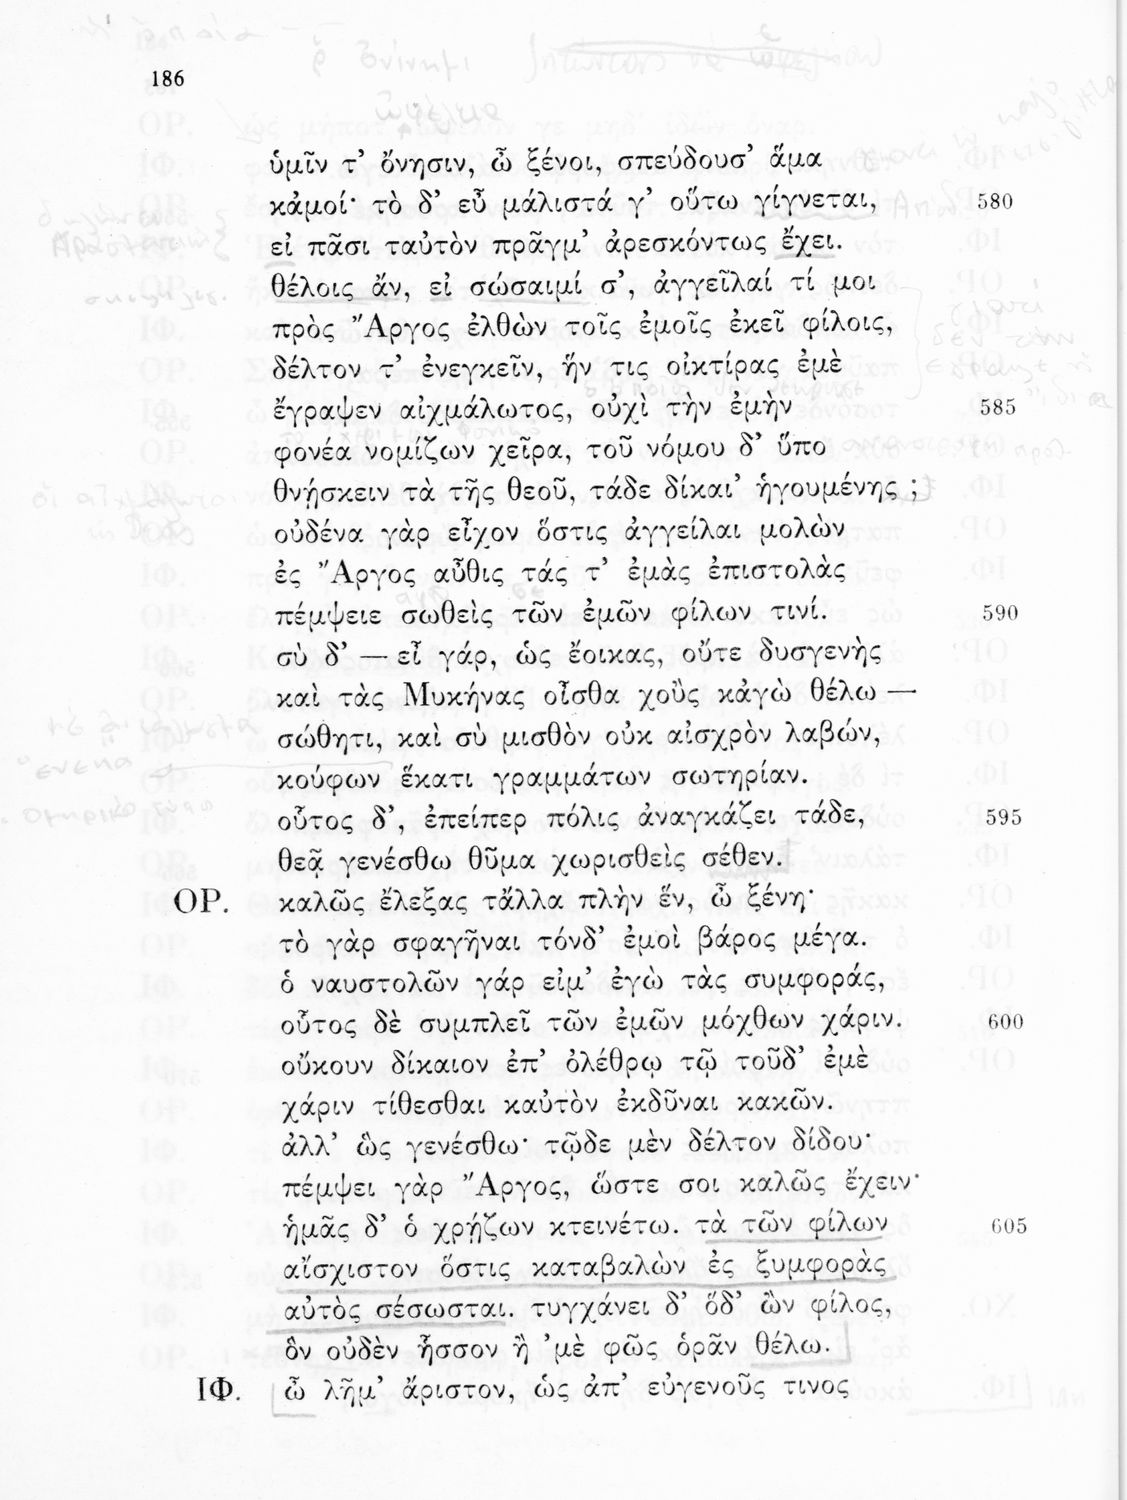 186
ὑμῖν τ’ ὄνησιν, ὦ ξένοι, σπεύδουσ’ ἅμα
κἀμοί· τὸ δ’ εὖ μάλιστά γ’ οὕτω γίγνεται, 580
εἰ πᾶσι ταὐτὸν πρᾶγμ’ ἀρεσκόντως ἔχει.
θέλοις ἄν, εἰ σώσαιμί σ’, ἀγγεῖλαί τί μοι
πρὸς Ἄργος ἐλθὼν τοῖς ἐμοῖς ἐκεῖ φίλοις,
δέλτον τ’ ἐνεγκεῖν, ἥν τις οἰκτίρας ἐμὲ
ἔγραψεν αἰχμάλωτος, οὐχὶ τὴν ἐμὴν 585
φονέα νομίζων χεῖρα, τοῦ νόμου δ’ ὕπο
θνῄσκειν τὰ τῆς θεοῦ, τάδε δίκαι’ ἡγουμένης ;
οὐδένα γὰρ εἶχον ὅστις ἀγγείλαι μολὼν
ἐς Ἄργος αὖθις τάς τ’ ἐμὰς ἐπιστολὰς
πέμψειε σωθεὶς τῶν ἐμῶν φίλων τινί. 590
σὺ δ’ — εἶ γάρ, ὡς ἔοικας, οὔτε δυσγενὴς
καὶ τὰς Μυκήνας οἶσθα χοὓς κἀγὼ θέλω —
σώθητι, καὶ σὺ μισθὸν οὐκ αἰσχρὸν λαβών,
κούφων ἕκατι γραμμάτων σωτηρίαν.
οὗτος δ’, ἐπείπερ πόλις ἀναγκάζει τάδε, 595
θεᾷ γενέσθω θῦμα χωρισθεὶς σέθεν.
ΟΡ. καλῶς ἔλεξας τἄλλα πλὴν ἕν, ὦ ξένη·
τὸ γὰρ σφαγῆναι τόνδ’ ἐμοὶ βάρος μέγα.
ὁ ναυστολῶν γάρ εἰμ’ ἐγὼ τὰς συμφοράς,
οὗτος δὲ συμπλεῖ τῶν ἐμῶν μόχθων χάριν. 600
οὔκουν δίκαιον ἐπ’ ὀλέθρῳ τῷ τοῦδ’ ἐμὲ
χάριν τίθεσθαι καὐτὸν ἐκδῦναι κακῶν.
ἀλλ’ ὣς γενέσθω· τῷδε μὲν δέλτον δίδου·
πέμψει γὰρ Ἄργος, ὥστε σοι καλῶς ἔχειν·
ἡμᾶς δ’ ὁ χρῄζων κτεινέτω. τὰ τῶν φίλων 605
αἴσχιστον ὅστις καταβαλὼν ἐς ξυμφορὰς
αὐτὸς σέσωσται. τυγχάνει δ’ ὅδ’ ὢν φίλος,
ὃν οὐδὲν ἧσσον ἢ ’μὲ φῶς ὁρᾶν θέλω.
ΙΦ. ὦ λῆμ’ ἄριστον, ὡς ἀπ’ εὐγενοῦς τινος